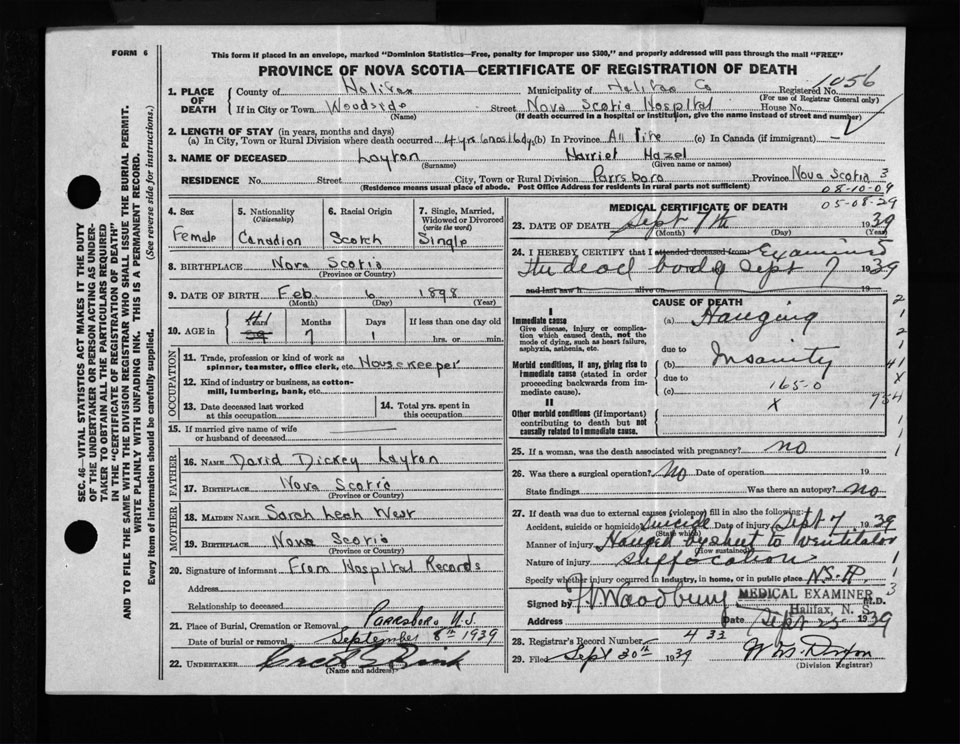 FORM 6
This form if placed in an envelope, marked "Dominion Statistics—Free, penalty for improper use $300," and properly addressed will pass through the mail "FREE"
PROVINCE OF NOVA SCOTIA—CERTIFICATE OF REGISTRATION OF DEATH
SEC. 46—VITAL STATISTICS ACT MAKES IT THE DUTY
OF THE UNDERTAKER OR PERSON ACTING AS UNDER-
TAKER TO OBTAIN ALL THE PARTICULARS REQUIRED
IN THE "CERTIFICATE OF REGISTRATION OF DEATH"
AND TO FILE THE SAME WITH THE DIVISION REGISTRAR WHO SHALL ISSUE THE BURIAL PERMIT.
WRITE PLAINLY WITH UNFADING INK. THIS IS A PERMANENT RECORD.
Every item of information should be carefully supplied. (See reverse side for instructions.)
1. PLACE OF DEATH County of Halifax Municipality of Halifax Co Registered No. 1056
(For use of Registrar General only)
If in City or Town Woodside Street Nova Scotia Hospital House No.
(Name) (If death occurred in a hospital or institution, give the name instead of street and number)
2. LENGTH OF STAY (in years, months and days)
(a) In City, Town or Rural Division where death occurred 4 yrs 6 mos 16 dys (b) In Province All life (c) In Canada (if immigrant) —
3. NAME OF DECEASED Layton Harriet Hazel
(Surname) (Given name or names)
RESIDENCE No. Street City, Town or Rural Division Parrsboro Province Nova Scotia 3
(Residence means usual place of abode. Post Office Address for residents in rural parts not sufficient)
08-10-09
05-08-29
4. Sex Female
5. Nationality (Citizenship) Canadian
6. Racial Origin Scotch
7. Single, Married, Widowed or Divorced (write the word) Single
8. BIRTHPLACE Nova Scotia
(Province or Country)
9. DATE OF BIRTH Feb. 6 1898
(Month) (Day) (Year)
10. AGE in 41 Years 39 Months 7 Days 1 If less than one day old hrs. or min.
OCCUPATION
11. Trade, profession or kind of work as spinner, teamster, office clerk, etc. Housekeeper
12. Kind of industry or business, as cotton-mill, lumbering, bank, etc.
13. Date deceased last worked at this occupation
14. Total yrs. spent in this occupation
15. If married give name of wife or husband of deceased
FATHER
16. NAME David Dickey Layton
17. BIRTHPLACE Nova Scotia
(Province or Country)
MOTHER
18. MAIDEN NAME Sarah Leah West
19. BIRTHPLACE Nova Scotia
(Province or Country)
20. Signature of informant From Hospital Records
Address
Relationship to deceased
21. Place of Burial, Cremation or Removal Parrsboro N.S.
Date of burial or removal September 8th 1939
22. UNDERTAKER
(Name and address)
MEDICAL CERTIFICATE OF DEATH
23. DATE OF DEATH Sept 7th 1939
(Month) (Day) (Year)
24. I HEREBY CERTIFY that I attended deceased from Examined 5
the dead body Sept 7 1939
and last saw h alive on 19
CAUSE OF DEATH
I
Immediate cause
Give disease, injury or complication which caused death, not the mode of dying, such as heart failure, asphyxia, asthenia, etc.
(a) Hanging
due to
Morbid conditions, if any, giving rise to immediate cause (stated in order proceeding backwards from immediate cause).
(b) Insanity
due to
(c) 165-0
II
Other morbid conditions (if important) contributing to death but not causally related to immediate cause.
X
2
1
2
1
41
X
754
1
1
1
25. If a woman, was the death associated with pregnancy? no
26. Was there a surgical operation? No Date of operation 19
State findings Was there an autopsy? no
27. If death was due to external causes (violence) fill in also the following:
Accident, suicide or homicide Suicide Date of injury Sept 7, 1939
(State which)
Manner of injury Hanged by sheet to ventilator
(How sustained)
Nature of injury suffocation 1
Specify whether injury occurred in industry, in home, or in public place N.S.H. 1
Signed by H Woodbury M.D. 3
MEDICAL EXAMINER
Halifax, N. S.
Address Date Sept 25 1939
28. Registrar's Record Number 433
29. Filed Sept 30th 1939
(Division Registrar)